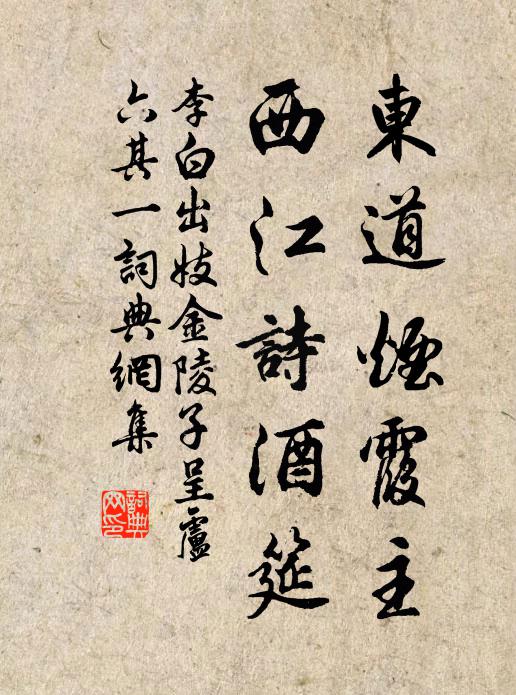 東道煙霞主
西江詩酒筵
李白出妓金陵子呈盧
六其一詞典網集
詞典
网印